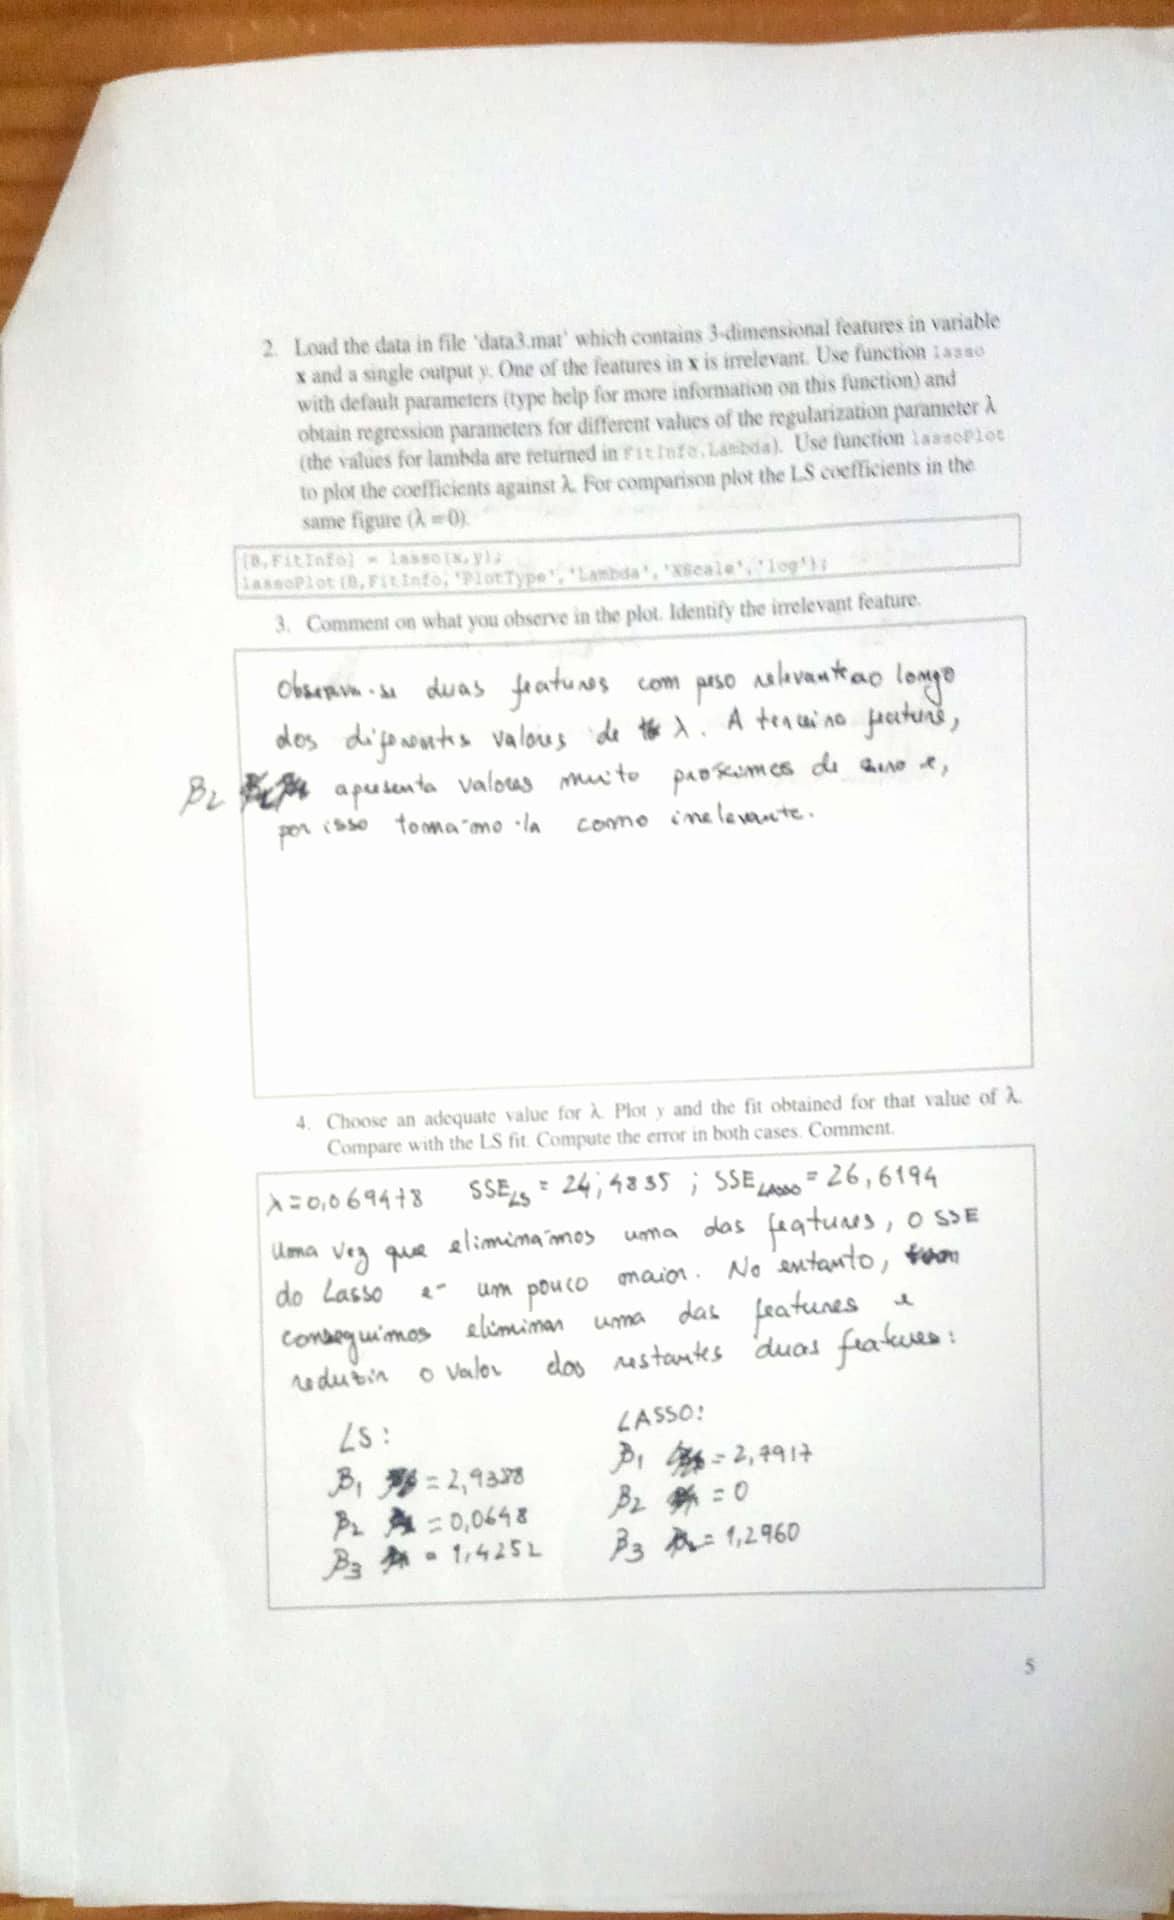 2. Load the data in file 'data3.mat' which contains 3-dimensional features in variable
x and a single output y. One of the features in x is irrelevant. Use function lasso
with default parameters (type help for more information on this function) and
obtain regression parameters for different values of the regularization parameter λ
(the values for lambda are returned in FitInfo.Lambda). Use function lassoPlot
to plot the coefficients against λ. For comparison plot the LS coefficients in the
same figure (λ=0).
[B,FitInfo] = lasso(x,y);
lassoPlot(B,FitInfo,'PlotType','Lambda','XScale','log');
3. Comment on what you observe in the plot. Identify the irrelevant feature.
Observam-se duas features com peso relevante ao longo
dos diferentes valores de λ. A terceira feature,
β2 apresenta valores muito próximos de zero e,
por isso tomamo-la como irrelevante.
4. Choose an adequate value for λ. Plot y and the fit obtained for that value of λ.
Compare with the LS fit. Compute the error in both cases. Comment.
λ=0,069478 SSE_LS = 24,4835 ; SSE_LASSO = 26,6194
Uma vez que eliminámos uma das features, o SSE
do Lasso é um pouco maior. No entanto,
conseguimos eliminar uma das features e
reduzir o valor das restantes duas features:
LS: LASSO:
β1 = 2,9388 β1 = 2,7917
β2 = 0,0648 β2 = 0
β3 = 1,4252 β3 = 1,2960
5